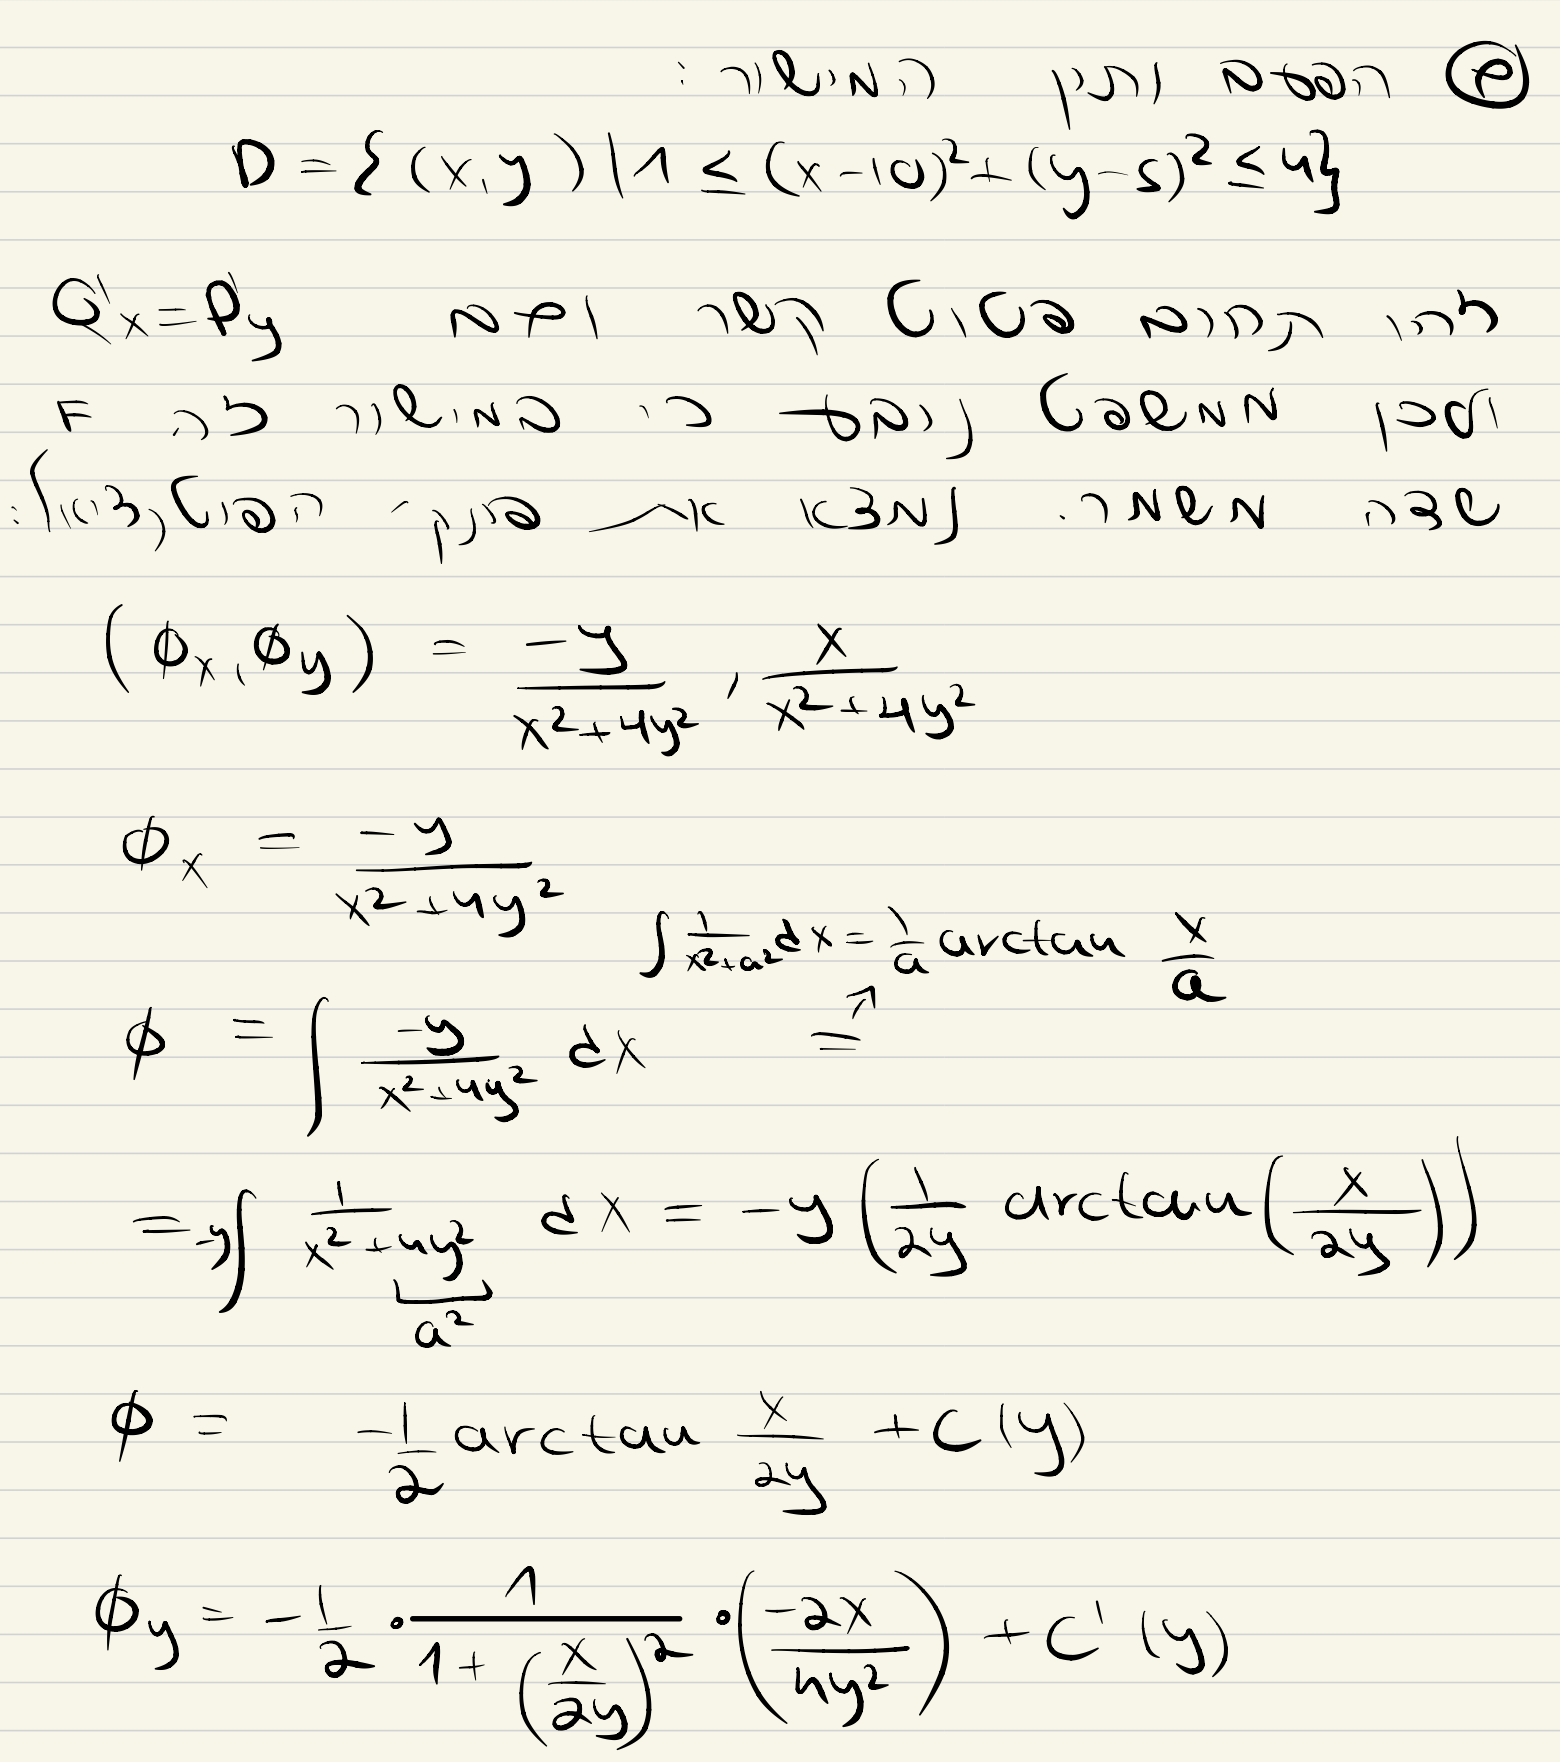 ⓔ הפעם נתון המישור:
D = {(x,y) | 1 ≤ (x-10)²+(y-5)² ≤ 4}
זהו תחום פשוט קשר וגם Q'x = P'y
ולכן ממשפט נובע כי במישור זה F
שדה משמר. נמצא את פונק' הפוטנציאל:
(ϕx, ϕy) = -y/(x²+4y²) , x/(x²+4y²)
ϕx = -y/(x²+4y²)
∫ 1/(x²+a²) dx = 1/a arctan x/a
ϕ = ∫ -y/(x²+4y²) dx =
= -y∫ 1/(x²+4y²) dx = -y(1/2y arctan(x/2y))
a²
ϕ = -1/2 arctan x/2y + C(y)
ϕy = -1/2 · 1/(1+(x/2y)²) · (-2x/4y²) + C'(y)